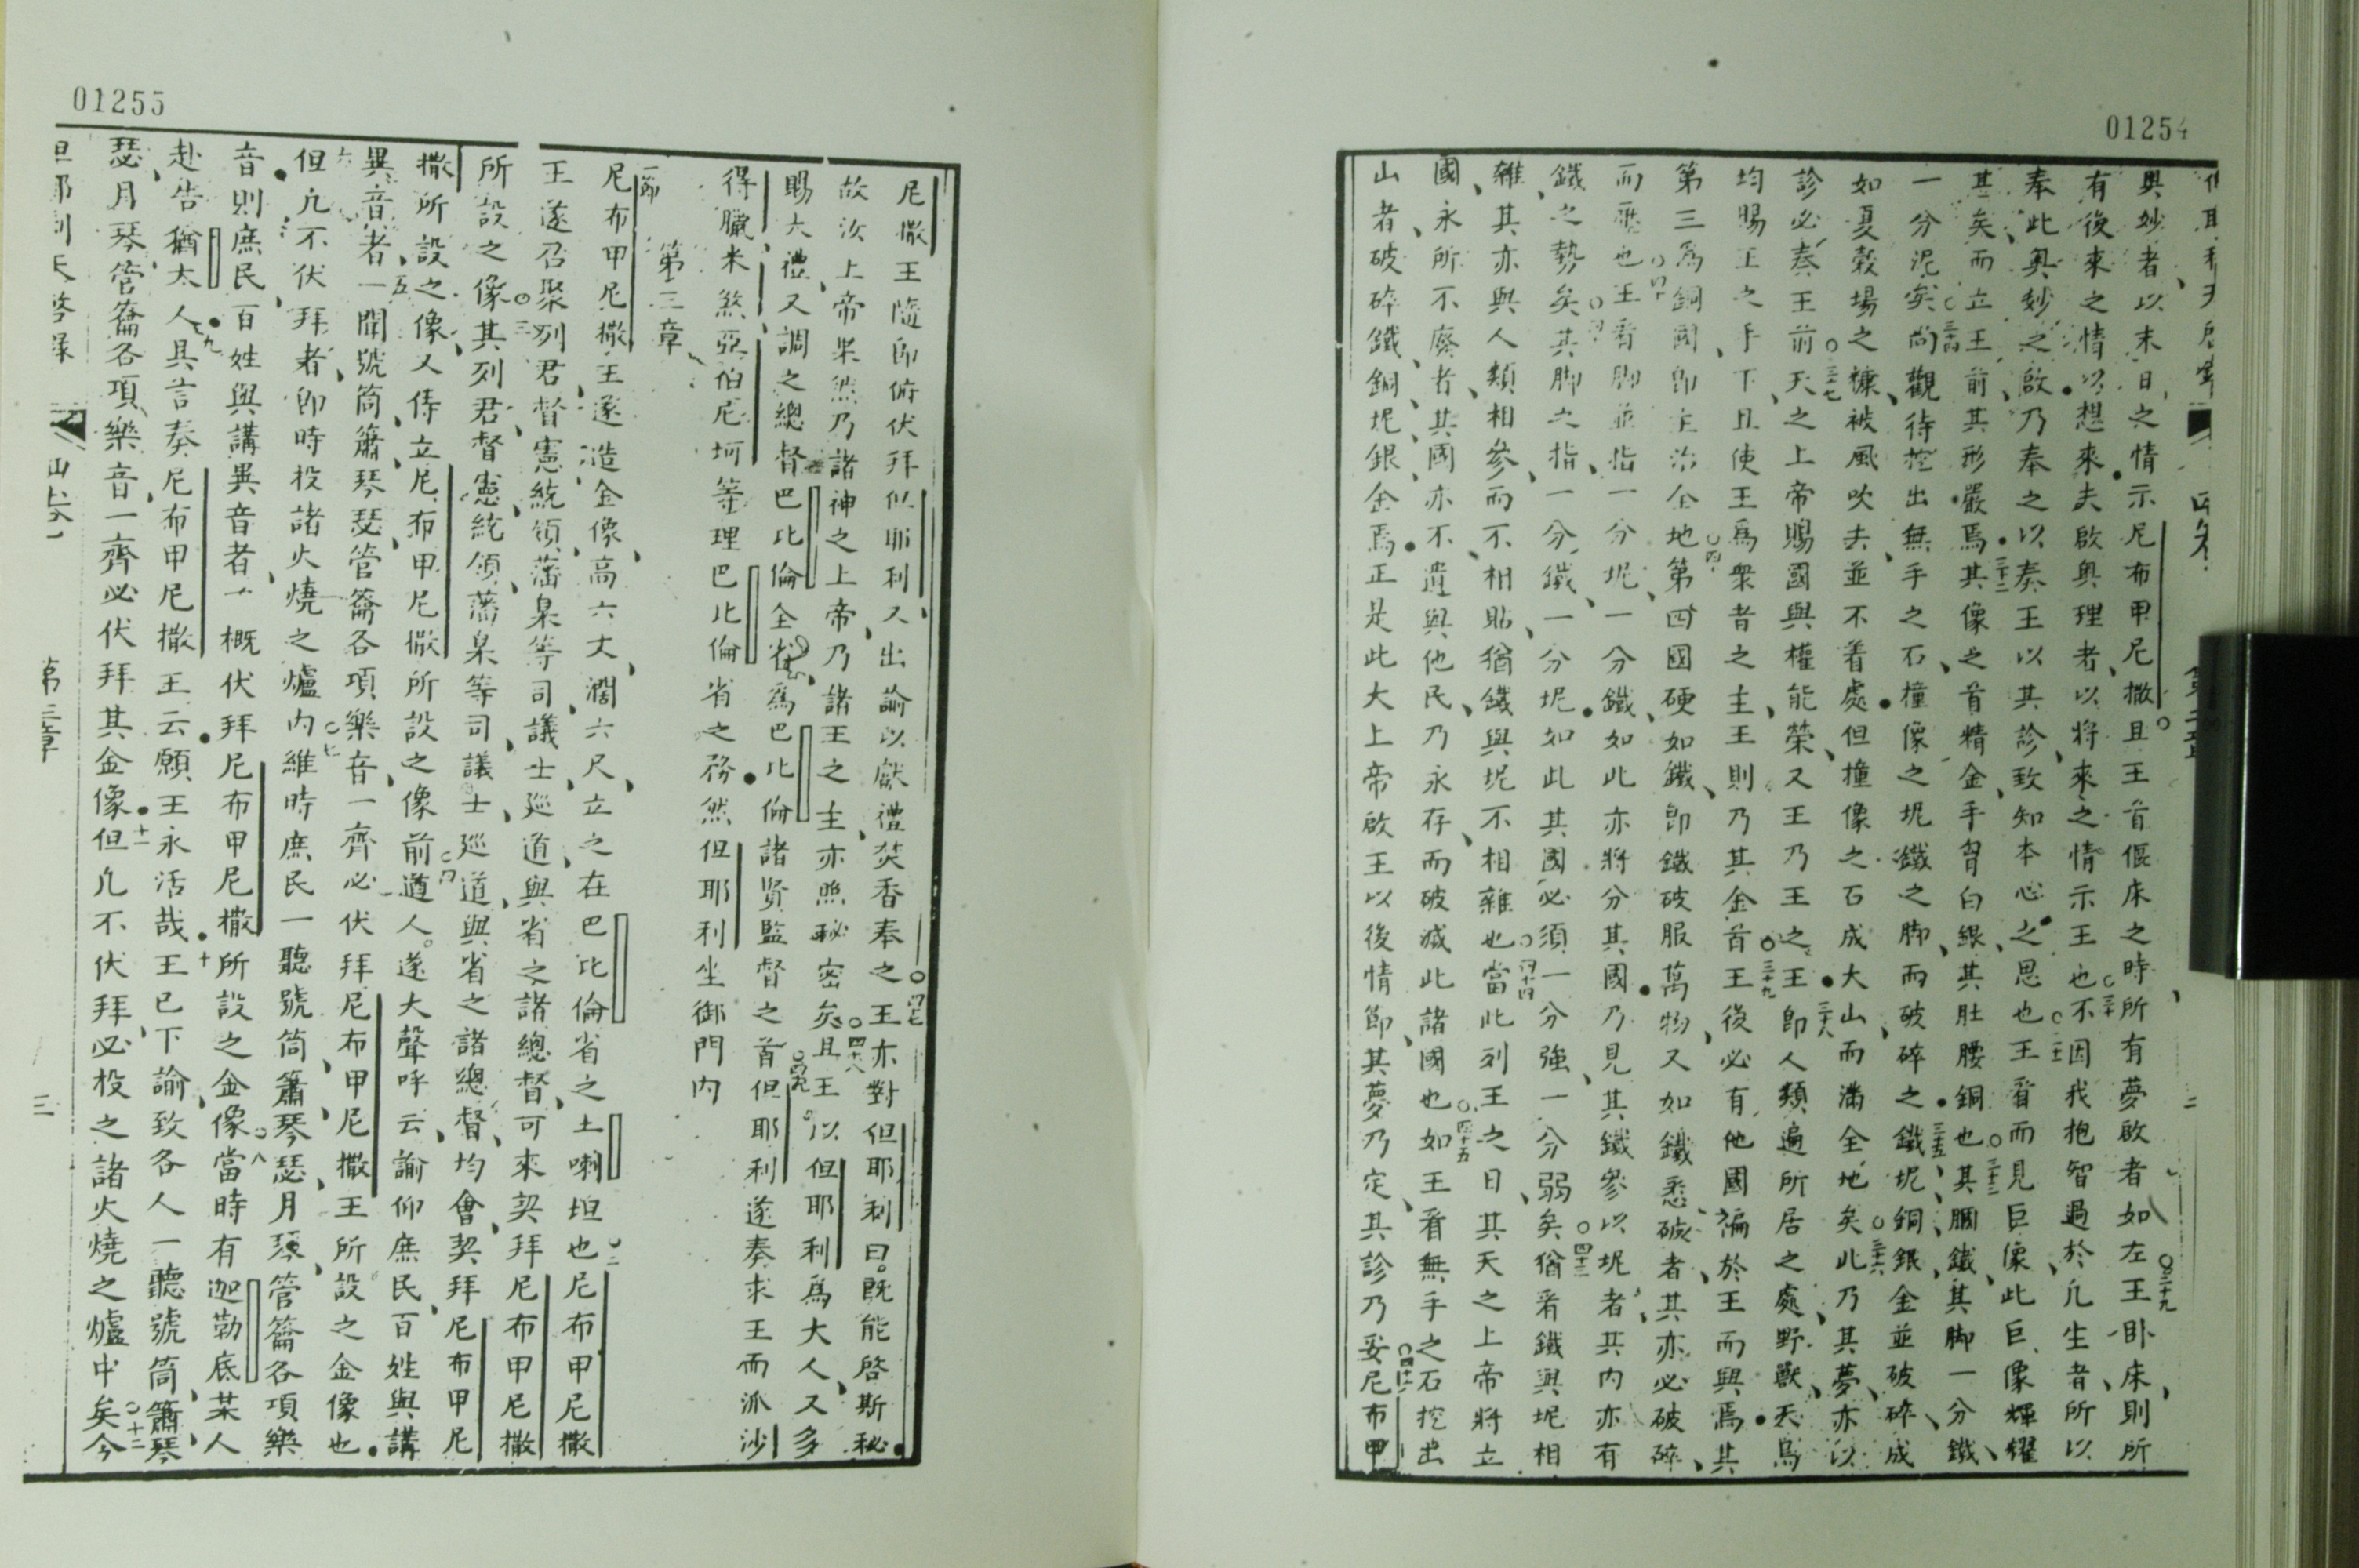 01254
奧妙者以末日之情示尼布甲尼撒且王首偃床之時所有夢啟者如左王卧床則所
有後來之情以想來夫啟奧理者以將來之情示王也不因我抱智過於凡生者所以
奉此奧妙之啟乃奉之以奏王以其診致知本心之思也王看而見巨像此巨像輝耀
其矣而立王前其形嚴焉其像之首精金手胷白銀其肚腰銅也其膕鐵其脚一分鐵
一分泥矣尚觀待挖出無手之石撞像之坭鐵之脚而破碎之鐵坭銅銀金並破碎成
如夏穀場之糠被風吹去並不着處但撞像之石成大山而滿全地矣此乃其夢亦以
診必奏王前天之上帝賜國與權能榮又王乃王之王即人類遍所居之處野獸天鳥
均賜王之手下且使王爲衆者之主王則乃其金首王後必有他國褊於王而興焉其
第三爲銅國即主治全地第四國硬如鐵即鐵破服萬物又如鐵悉破者其亦必破碎
而壓也王看脚並指一分坭一分鐵如此亦將分其國乃見其鐵參以坭者其内亦有
鐵之勢矣其脚之指一分鐵一分坭如此其國必須一分強一分弱矣猶看鐵與坭相
雜其亦與人類相參而不相貼猶鐵與坭不相雜也當此列王之日其天之上帝將立
國永所不廢者其國亦不遺與他民乃永存而破滅此諸國也如王看無手之石挖出
山者破碎鐵銅坭銀金焉正是此大上帝啟王以後情節其夢乃定其診乃妥尼布甲
01255
尼撒王隨即俯伏拜但耶利又出諭以獻禮焚香奉之王亦對但耶利曰既能啓斯秘
故汝上帝果然乃諸神之上帝乃諸王之主亦照秘密矣且王以但耶利爲大人又多
賜大禮又調之總督巴比倫全省爲巴比倫諸賢監督之首但耶利遂奏求王而派沙
得臘米煞亞伯尼坷等理巴比倫省之務然但耶利坐御門内
第三章
一節
尼布甲尼撒王遂造金像高六丈濶六尺立之在巴比倫省之土喇坦也尼布甲尼撒
王遂召聚列君督憲統領藩臬等司議士廵道與省之諸總督可來契拜尼布甲尼撒
所設之像其列君督憲統領藩臬等司議士廵道與省之諸總督均會契拜尼布甲尼
撒所設之像又侍立尼布甲尼撒所設之像前遒人遂大聲呼云諭仰庶民百姓與講
異音者一聞號筒簫琴瑟管籥各項樂音一齊必伏拜尼布甲尼撒王所設之金像也
但凡不伏拜者即時投諸火燒之爐内維時庶民一聽號筒簫琴瑟月琴管籥各項樂
音則庶民百姓與講異音者一概伏拜尼布甲尼撒所設之金像當時有迦勒底某人
赴告猶太人具言奏尼布甲尼撒王云願王永活哉王已下諭致各人一聽號筒簫琴
瑟月琴管籥各項樂音一齊必伏拜其金像但凡不伏拜必投之諸火燒之爐中矣今
第三章
三